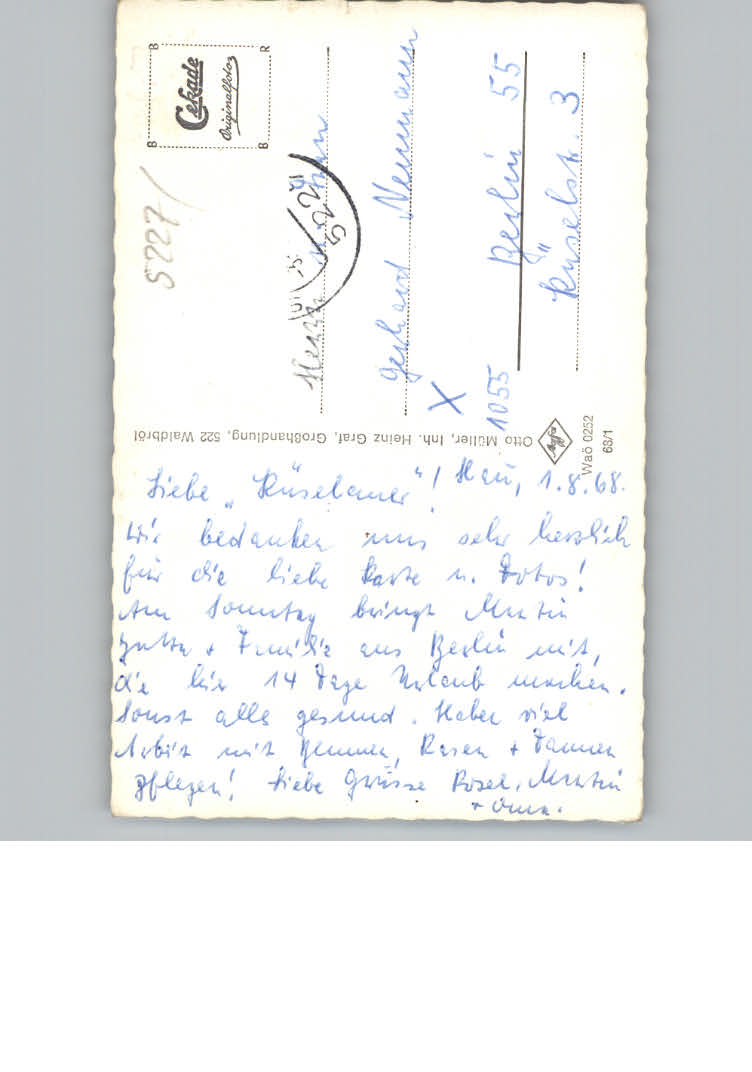 Liebe "Rüselaner"! Hau, 1.8.68.
Wir bedanken uns sehr herzlich
für die liebe Karte u. Fotos!
Am Sonntag bringt Martin
Jutta + Familie aus Berlin mit,
die hier 14 Tage Urlaub machen.
Sonst alles gesund. Haben viel
Arbeit mit Blumen, Rasen + Tannen
pflegen! Liebe Grüsse Rosel, Martin
+ Oma.
Otto Müller, Inh. Heinz Graf, Großhandlung, 522 Waldbröl
Agfa
Waö 0252
68/1
Herrn u. Frau
Gerhard Neumann
X
1055 Berlin 55
Rüselstr. 3
Cekade
Originalfoto
B
R
B
B
5227/
522